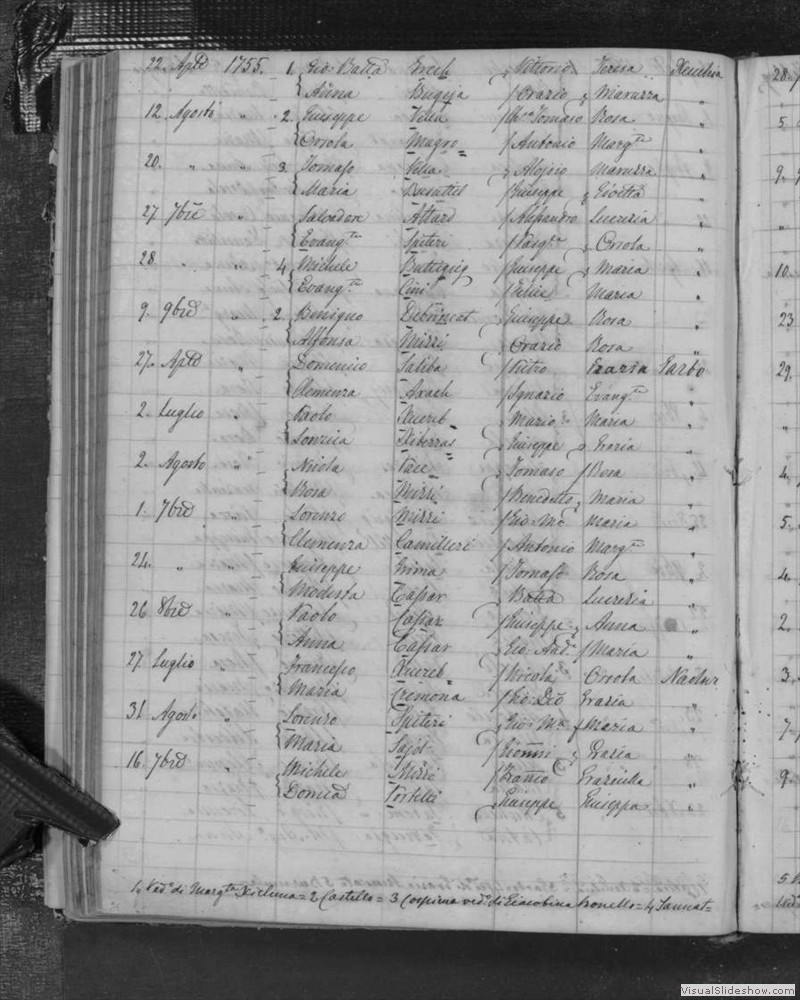 22. Aple 1755. 1. Gio Batta Grech Vittorio Teresa Xeuchia
Anna Bugeja Orazio Maruzza "
12 Agosto " 2. Giuseppe Vella Tomaso Rosa "
Orsola Mugro Antonio Margta "
20. " " 3. Tomaso Vella Aloisio Maruzza "
Maria Busuttil Giuseppe "
27 7bre " Salvadore Attard Lucrezia "
Evangta Spiteri Pasqle Orsola "
28. " " 4. Michele Buttigieg Giuseppe Maria "
Evangta Cini Felice Maria "
9. 9bre " 2. Benigno Giuseppe Rosa "
Alfonsa Mizzi Orazio Rosa "
27. Aple " Domenico Saliba Pietro Grazia Garbo
Clemenza Axach Ignazio Evangta "
2. Luglio " Paolo Xuereb Mario Maria "
Xiberras Giuseppe Grazia "
2. Agosto " Nicola Pace Tomaso Rosa "
Rosa Mizzi Benedetto Maria "
1. 7bre " Lorenzo Mizzi Gio: Ma Maria "
Clemenza Camilleri Antonio Margta "
24. " " Giuseppe Grima Tomaso Rosa "
Modesta Cassar Batta Lucrezia "
26 8bre " Paolo Cassar Giuseppe Anna "
Anna Cassar Gio: Anto Maria "
27. Luglio " Francesco Xuereb Nicola Orsola Nadur
Maria Cremona Grazia "
31. Agosto " Lorenzo Spiteri Gio: Ma Maria "
Maria Sajot Gionni Grazia "
16. 7bre " Michele Mizzi Franco "
Domca Portelli Giuseppe Giuseppa "
1. Vedo di Margta = 2 Castello = 3 Cospicua vedo di Giacobina = 4 Sannat =
28.
5.
9.
"
10.
23
29.
"
4.
5.
4.
2.
3.
7.
9.
VisualSlideshow.com